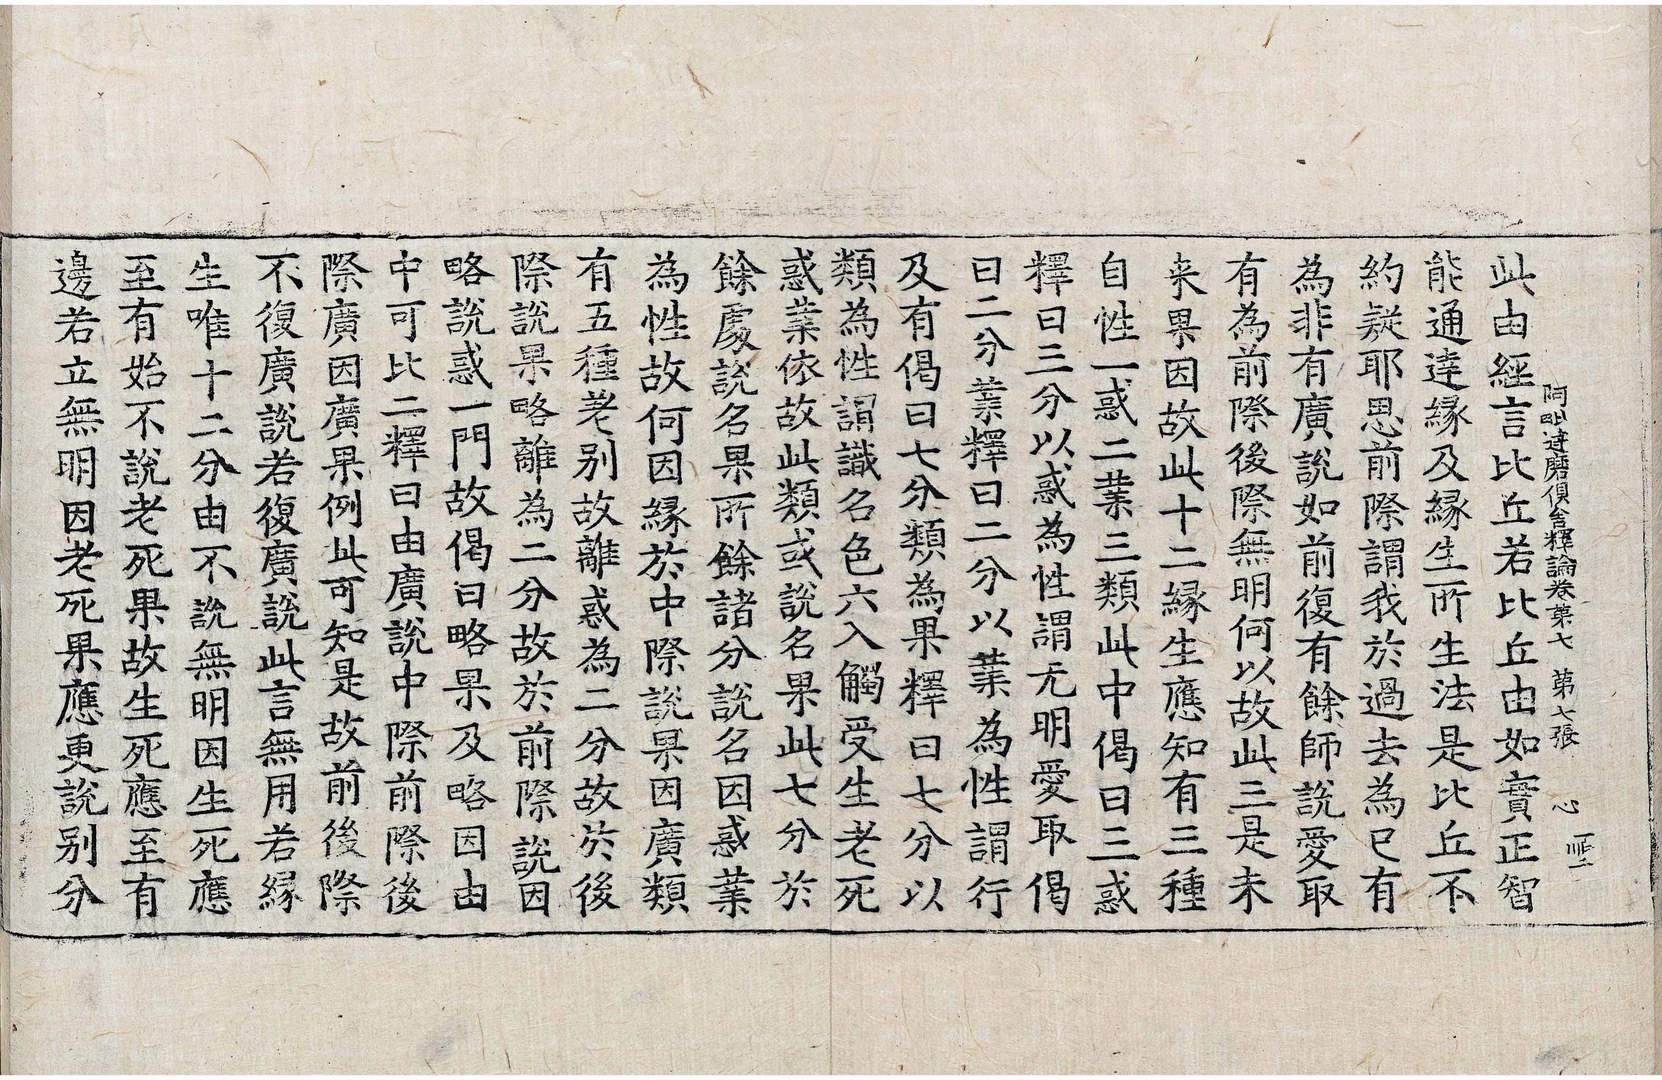 阿毗達磨俱舍釋論卷第七　第七張　心
此由經言比丘若比丘由如實正智
能通達緣及緣生所生法是比丘不
約疑耶思前際謂我於過去為已有
為非有廣說如前復有餘師說愛取
有為前際後際無明何以故此三是未
来果因故此十二緣生應知有三種
自性一惑二業三類此中偈曰三惑
釋曰三分以惑為性謂无明愛取偈
曰二分業釋曰二分以業為性謂行
及有偈曰七分類為果釋曰七分以
類為性謂識名色六入觸受生老死
惑業依故此類或說名果此七分於
餘處說名果所餘諸分說名因惑業
為性故何因緣於中際說果因廣類
有五種差别故離惑為二分故於後
際說果略離為二分故於前際說因
略說惑一門故偈曰略果及略因由
中可比二釋曰由廣說中際前際後
際廣因廣果例此可知是故前後際
不復廣說若復廣說此言無用若緣
生唯十二分由不說無明因生死應
至有始不說老死果故生死應至有
邊若立無明因老死果應更說别分